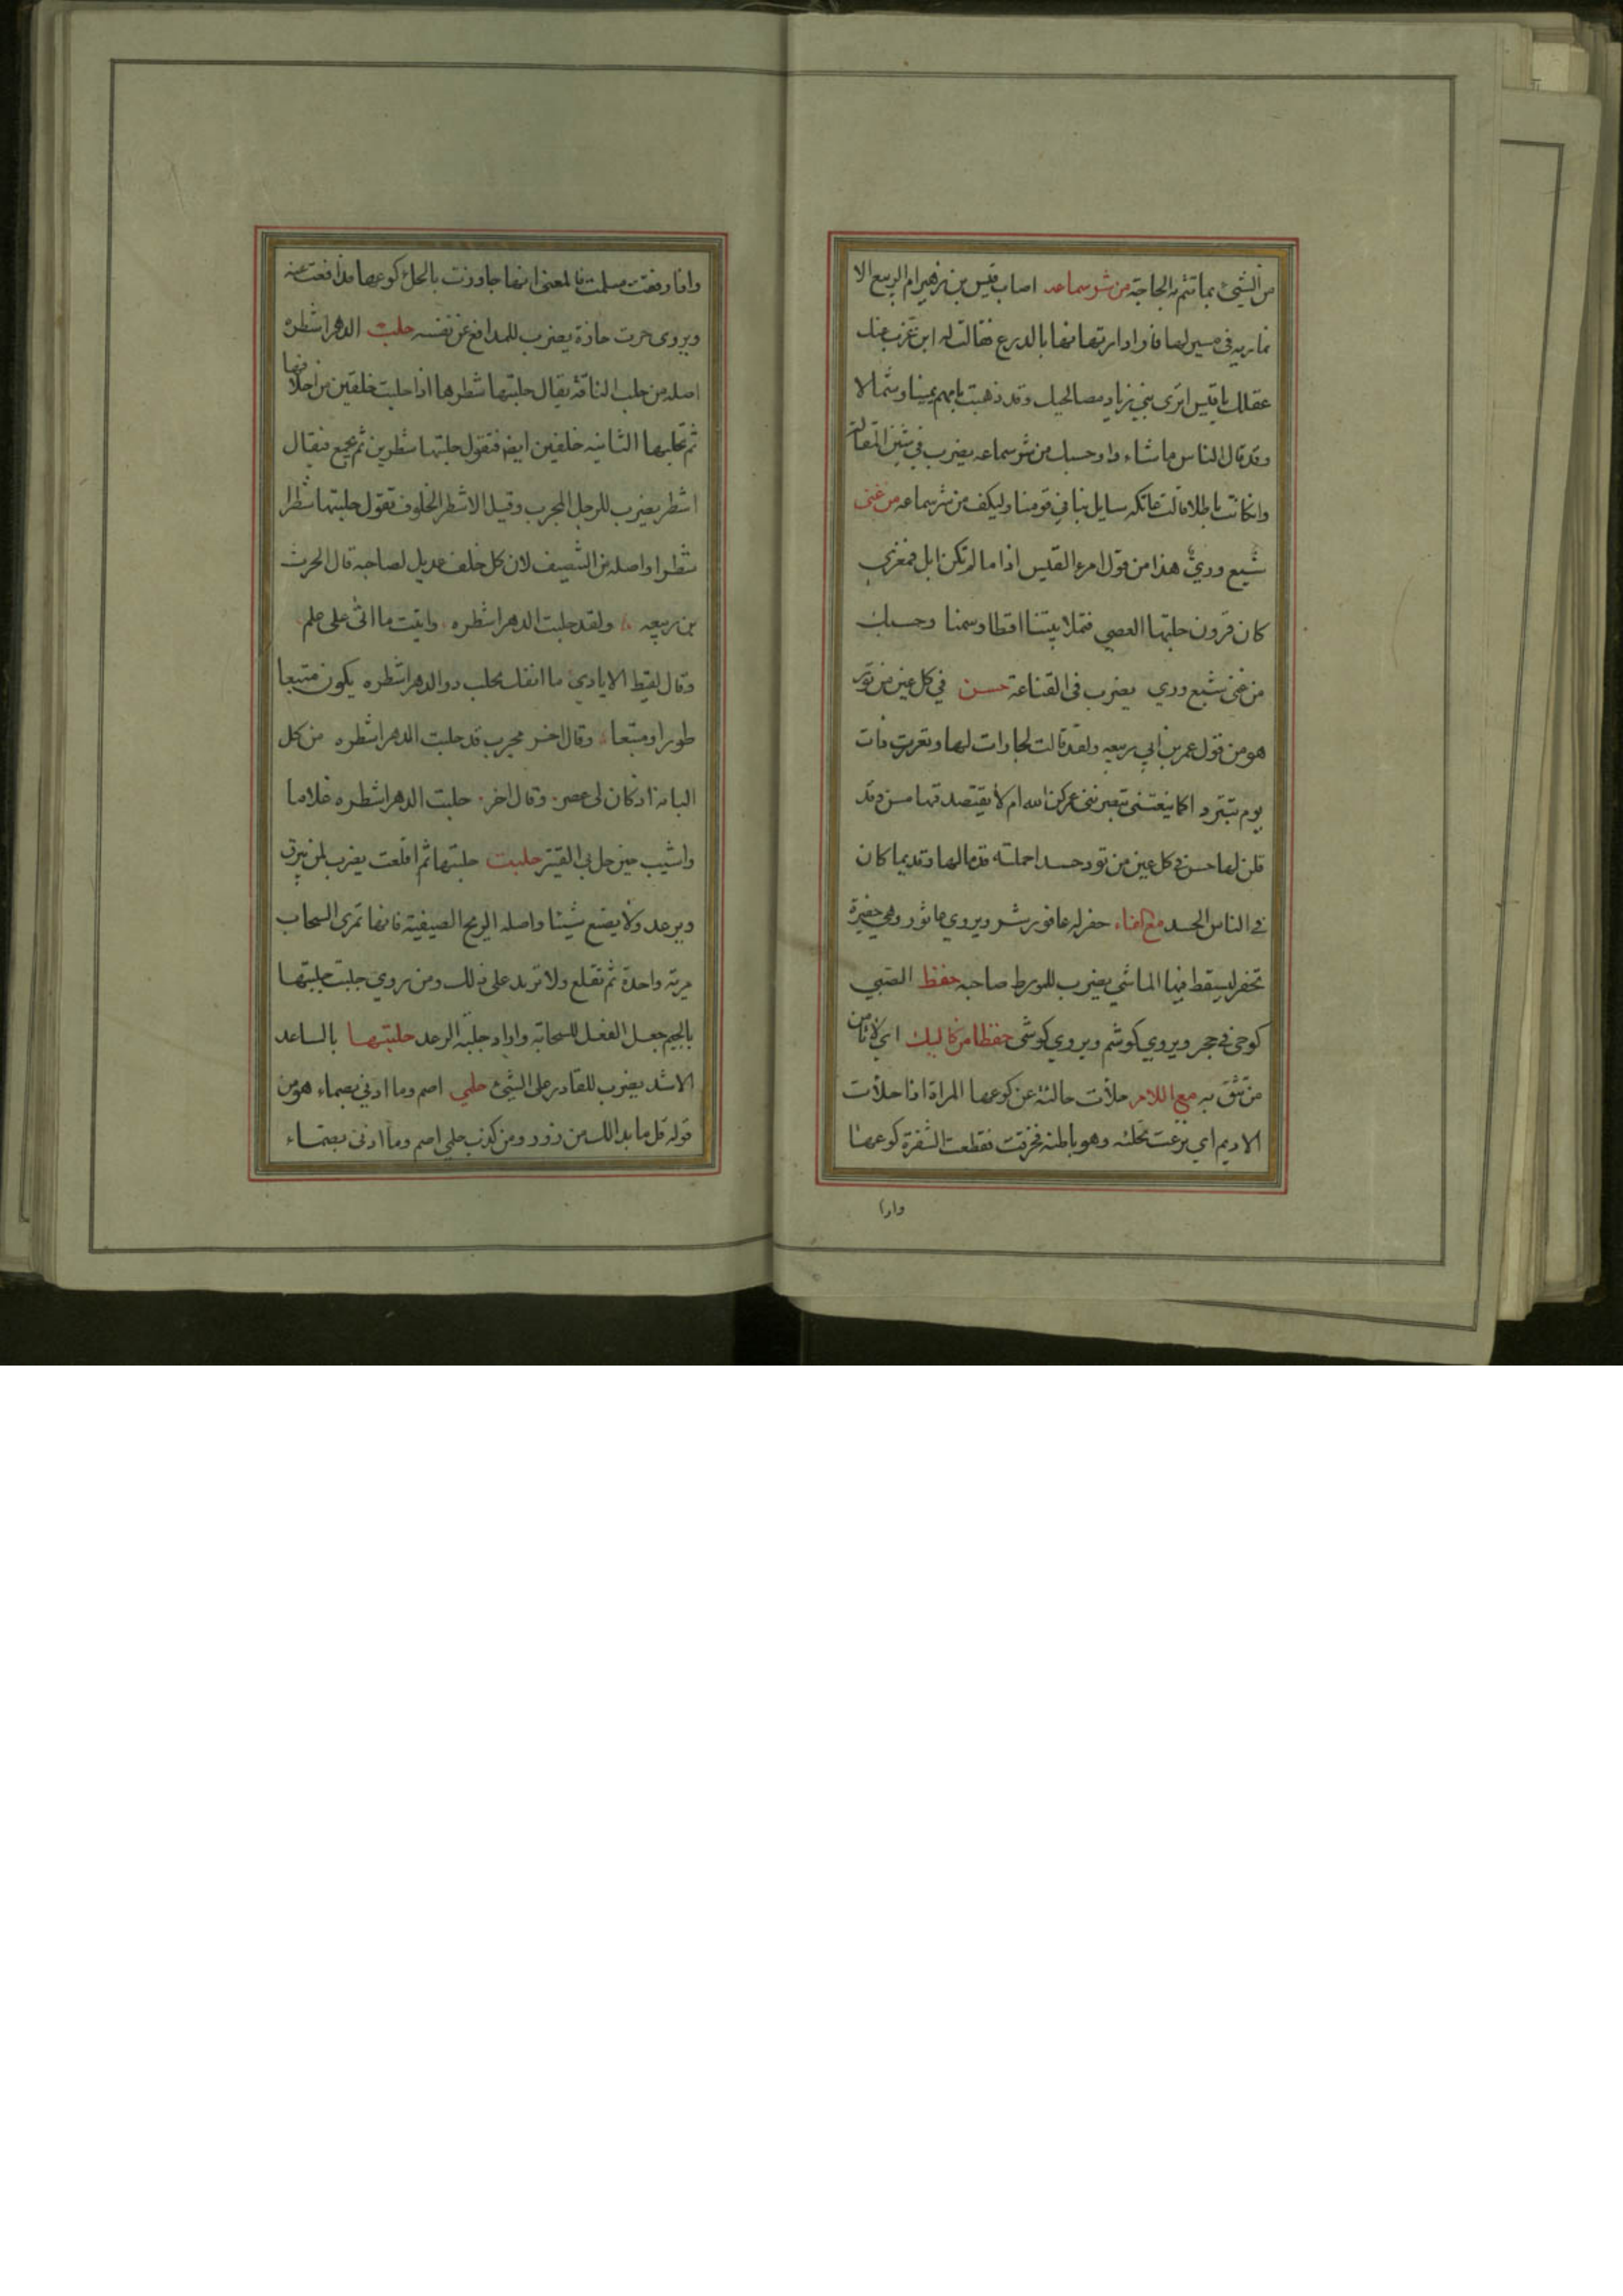 من الشيئ بما تتم به الحاجة من شر سماعه اصاب قيس بن زهير ام الربيع الا
نماريه في مسير لها فاراد ارتهانها بالدرع فقالت له اين عزب عنك
عقلك يا قيس اترى بني زياد مصالحيك وقد ذهبت بامهم يمينا وشمالا
وقد قال الناس ما شاءوا وحسبك من شر سماعه يضرب في شين المقالة
وانكانت باطلا قالت عاتكه سايل بنا في قومنا وليكف من شر سماعه من غنى
شبع وري هذا من قول امرء القيس اذا ما لم تكن ابل فمعزى
كان قرون جلتها العصي فتملا بيتنا اقطا وسمنا وحسبك
من غنى شبع وري يضرب في القناعة حسن في كل عين من تود
هو من قول عمر بن ابي ربيعه ولقد قالت لجارات لها وتعرت ذات
يوم تبترد اكما ينعتني تبصرنني عمركن الله ام لا يقتصد وقد
قلن لها حسن في كل عين من تود حسدا حملنه قد مالها وقديما كان
في الناس الحسد مع الفاء حفر له عافور شر ويروي عاثور وهي حفيرة
تحفر ليسقط فيها الماشي يضرب للمورط صاحبه حفظ الصبي
كوحى في حجر ويروي كوشم ويروي كوشى حفظا من كاليك اي لا تامن
من تثق به مع اللام حلأت حالئة عن كوعها المراة اذا حلأت
الاديم اي نزعت تحلئه وهو باطنه فخرقت فقطعت الشفرة كوعها
وارا
واذا رفقت سلمت فالمعنى انها جاوزت بالحلئ كوعها مدافعت عنه
ويروى حزت حازة يضرب للمدافع عن نفسه حلبت الدهر اشطره
اصله من حلب الناقة يقال حلبتها شطرها اذا حلبت خلفين من اخلافها
ثم تحلبها الثانيه خلفين ايضا فتقول حلبتها شطرين ثم تجمع فيقال
اشطر يضرب للرجل المجرب وقيل الاشطر الخلوف فتقول حلبتها شطرا
شطرا واصله من التنصيف لان كل خلف عديل لصاحبه قال الحرث
بن ربيعه ولقد حلبت الدهر اشطره واتيت ما اتى على علم
وقال لقيط الايادي ما انفك يحلب در الدهر اشطره يكون متبعا
طورا ومتبعا وقال اخر مجرب قد حلبت الدهر اشطره من كل
البانه اذ كان لى عصر وقال اخر حلبت الدهر اشطره غلاما
واشيب حين حل بي القتير حلبت حلبتها ثم اقلعت يضرب لمن يبرق
ويرعد ولا يصنع شيئا واصله الريح الصيفية فانها تمرى السحاب
مرية واحدة ثم تقلع ولا تزيد على ذلك ومن روي جلبت جلبتها
بالجيم جعل الفعل للسحابة واراد جلبة الرعد حلبتها بالساعد
الاشد يضرب للقادر على الشيئ حلمي اصم وما اذني بصماء هو من
قوله قل ما بدا لك من زور ومن كذب حلمي اصم وما اذنى بصماء